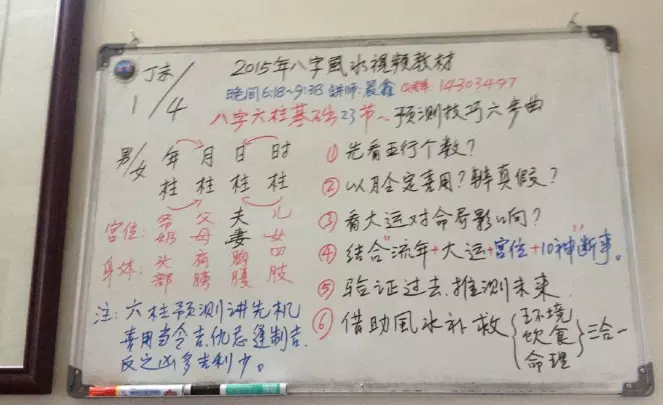 丁未
1/4
2015年八字風水視頻教材
晚间6:18~9:38 讲师:晨鑫
八字六柱基础23节、预测技巧六步曲
男/女 年 月 日 时
柱 柱 柱 柱
宫位: 爷奶 父母 夫妻 儿女
身体: 头部 胸腰 四肢
注: 六柱预测讲先机
喜用当令吉、仇忌逢制吉
反之凶多吉利少。
① 先看五行个数?
② 以月令定喜用?辨真假?
③ 看大运对命局影响?
④ 结合"流年+大运+宫位+10神"断事。
⑤ 验证过去、推测未来
⑥ 借助風水补救{环境 饮食 命理}三合一